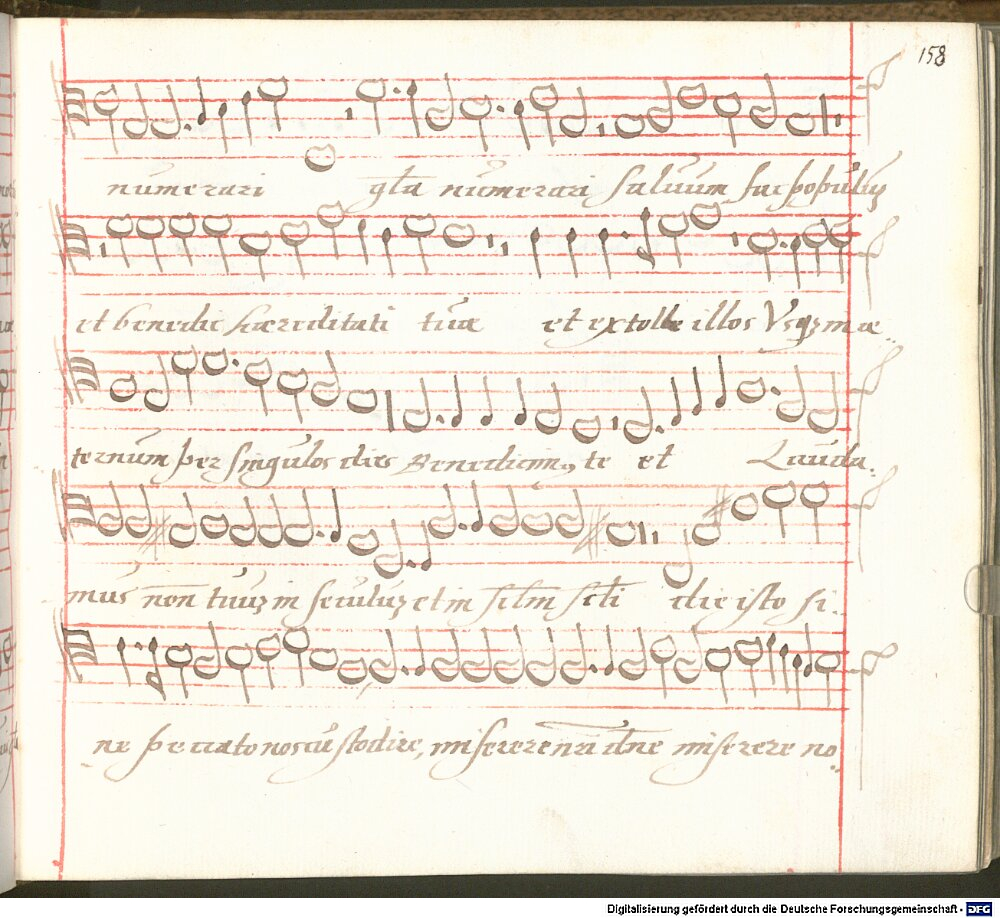 158
numerari gl̃a numerari salvum fac populũ
et benedic hæreditati tuæ et extolle illos Vsqꝫ in æ..
ternum per singulos dies Benedicimꝰ te et Lauda.
mus non tuuꝫ in seculuꝫ et in sclm̃ scl̃i die isto si..
ne peccato nos cũstodire, miserere nr̃i dñe miserere no..
Digitalisierung gefördert durch die Deutsche Forschungsgemeinschaft - DFG